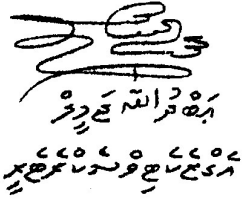 ޢަބްދުﷲ ޖަމީލް
އެގްޒެކެޓިވް ސެކްރެޓެރީ